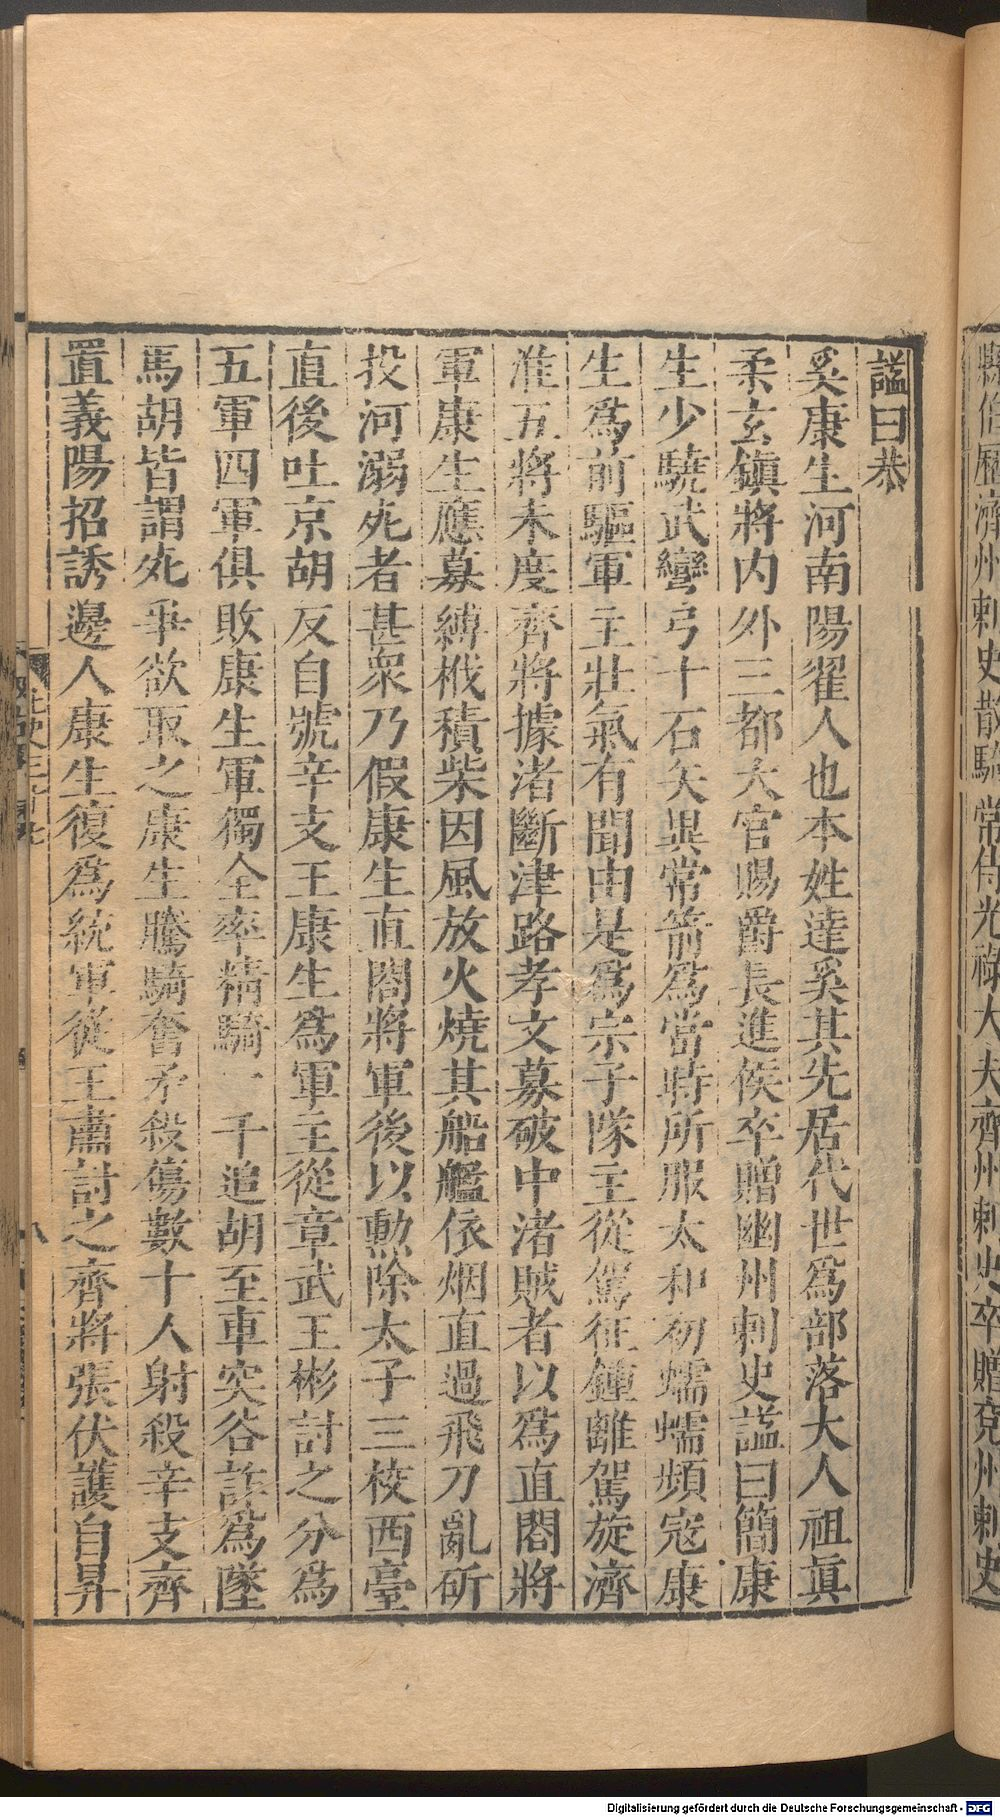 縣伯歷濟州刺史散騎常侍光祿大夫齊州刺史卒贈兖州刺史
謚曰恭
奚康生河南陽翟人也本姓達奚其先居代世爲部落大人祖眞
柔玄鎭將内外三都大官賜爵長進侯卒贈幽州刺史謚曰簡康
生少驍武彎弓十石矢異常箭爲當時所服太和初蠕蠕頻寇康
生爲前驅軍主壯氣有聞由是爲宗子隊主從駕征鍾離駕旋濟
淮五將未度齊將據渚斷津路孝文募破中渚賊者以爲直閤將
軍康生應募縛栰積柴因風放火燒其船艦依烟直過飛刀亂斫
投河溺死者甚衆乃假康生直閤將軍後以勲除太子三校西臺
直後吐京胡反自號辛支王康生爲軍主從章武王彬討之分爲
五軍四軍俱敗康生軍獨全率精騎一千追胡至車突谷詐爲墜
馬胡皆謂死爭欲取之康生騰騎奮矛殺傷數十人射殺辛支齊
置義陽招誘邊人康生復爲統軍從王肅討之齊將張伏護自昇
八
Digitalisierung gefördert durch die Deutsche Forschungsgemeinschaft - DFG